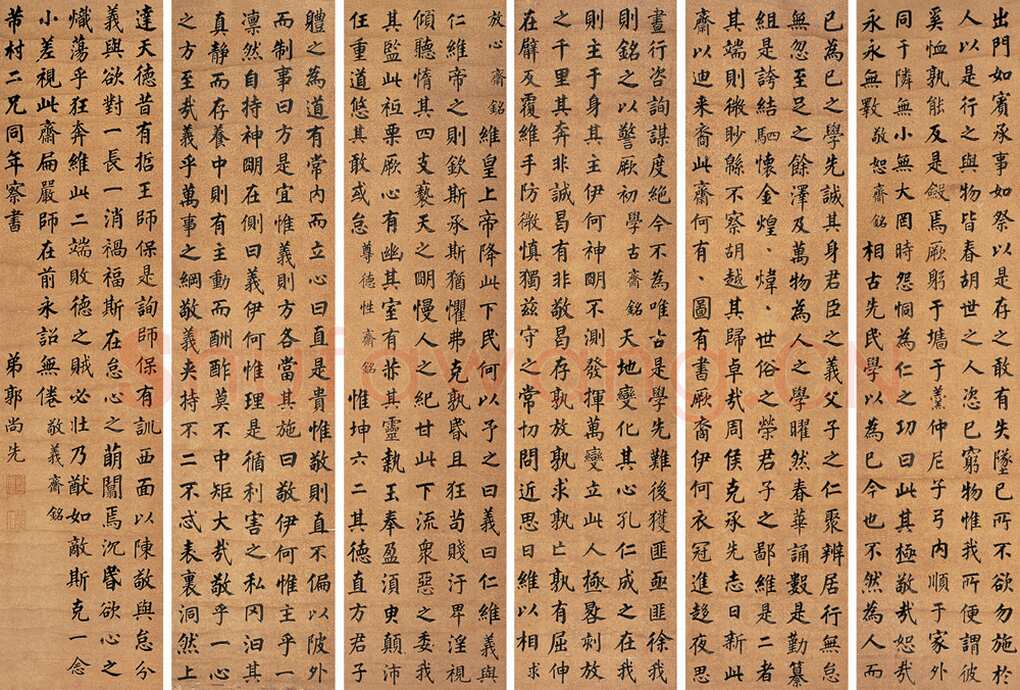 出門如賓承事如祭以是存之敢有失墜己所不欲勿施於
人以是行之與物皆春胡世之人恣己窮物惟我所便謂彼
奚恤孰能反是歛焉厥躬于墻于羹仲尼子弓内順于家外
同于隣無小無大罔時怨恫為仁之功曰此其極敬哉恕哉
永永無斁敬恕齋銘相古先民學以為己今也不然為人而
已為己之學先誠其身君臣之義父子之仁聚辨居行無怠
無忽至足之餘澤及萬物為人之學曜然春華誦數是勤纂
組是誇結駟懷金煌、煒、世俗之榮君子之鄙維是二者
其端則微眇緜不察胡越其歸卓哉周侯克承先志日新此
齋以迪来裔此齋何有、圖有書厥裔伊何衣冠進趍夜思
晝行咨詢謀度絶今不為唯古是學先難後獲匪亟匪徐我
則銘之以警厥初學古齋銘天地變化其心孔仁成之在我
則主于身其主伊何神明不測發揮萬變立此人極晷刻放
之千里其奔非誠曷有非敬曷存孰放孰求孰亡孰有屈伸
在臂反覆維手防微慎獨茲守之常切問近思曰維以相求
放心齋銘維皇上帝降此下民何以予之曰義曰仁維義與
仁維帝之則欽斯承斯猶懼弗克孰昏且狂苟賤汙卑淫視
傾聽惰其四支褻天之明慢人之紀甘此下流衆惡之委我
其監此祗栗厥心有幽其室有赫其靈執玉奉盈須臾顛沛
任重道悠其敢或怠尊德性齋銘惟坤六二其德直方君子
體之為道有常内而立心曰直是貴惟敬則直不偏以陂外
而制事曰方是宜惟義則方各當其施曰敬伊何惟主乎一
凛然自持神明在側曰義伊何惟理是循利害之私罔汩其
真静而存養中則有主動而酬酢莫不中矩大哉敬乎一心
之方至哉義乎萬事之綱敬義夾持不二不忒表裏洞然上
達天德昔有哲王師保是詢師保有訓西面以陳敬與怠分
義與欲對一長一消禍福斯在怠心之萌闒焉沉昏欲心之
熾蕩乎狂奔維此二端敗德之賊必壮乃猷如敵斯克一念
小差視此齋扁嚴師在前永詔無倦敬義齋銘
芾村二兄同年察書 弟郭尚先
shufawang.CN